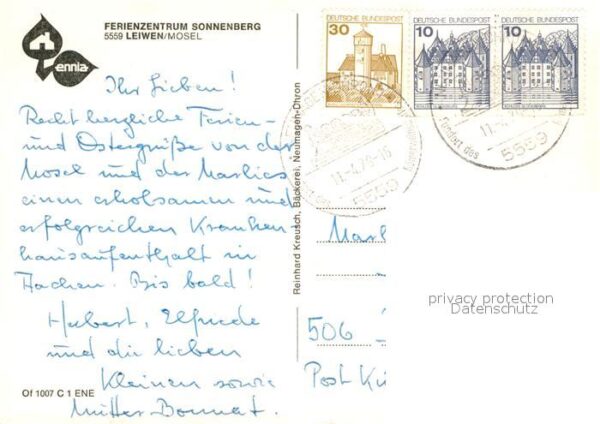 FERIENZENTRUM SONNENBERG
5559 LEIWEN/MOSEL
ennia
Ihr Lieben!
Recht herzliche Ferien-
und Ostergrüße von der
Mosel und der Marlies
einen erholsamen und
erfolgreichen Kranken-
hausaufenthalt in
Aachen. Bis bald!
Hubert, Elfriede
und die lieben
Kleinen sowie
Mutter Bonnat.
Of 1007 C 1 ENE
Reinhard Kreusch, Bäckerei, Neumagen-Dhron
30
DEUTSCHE BUNDESPOST
10
DEUTSCHE BUNDESPOST
10
DEUTSCHE BUNDESPOST
5559
Marl
506
Post Kü
privacy protection
Datenschutz